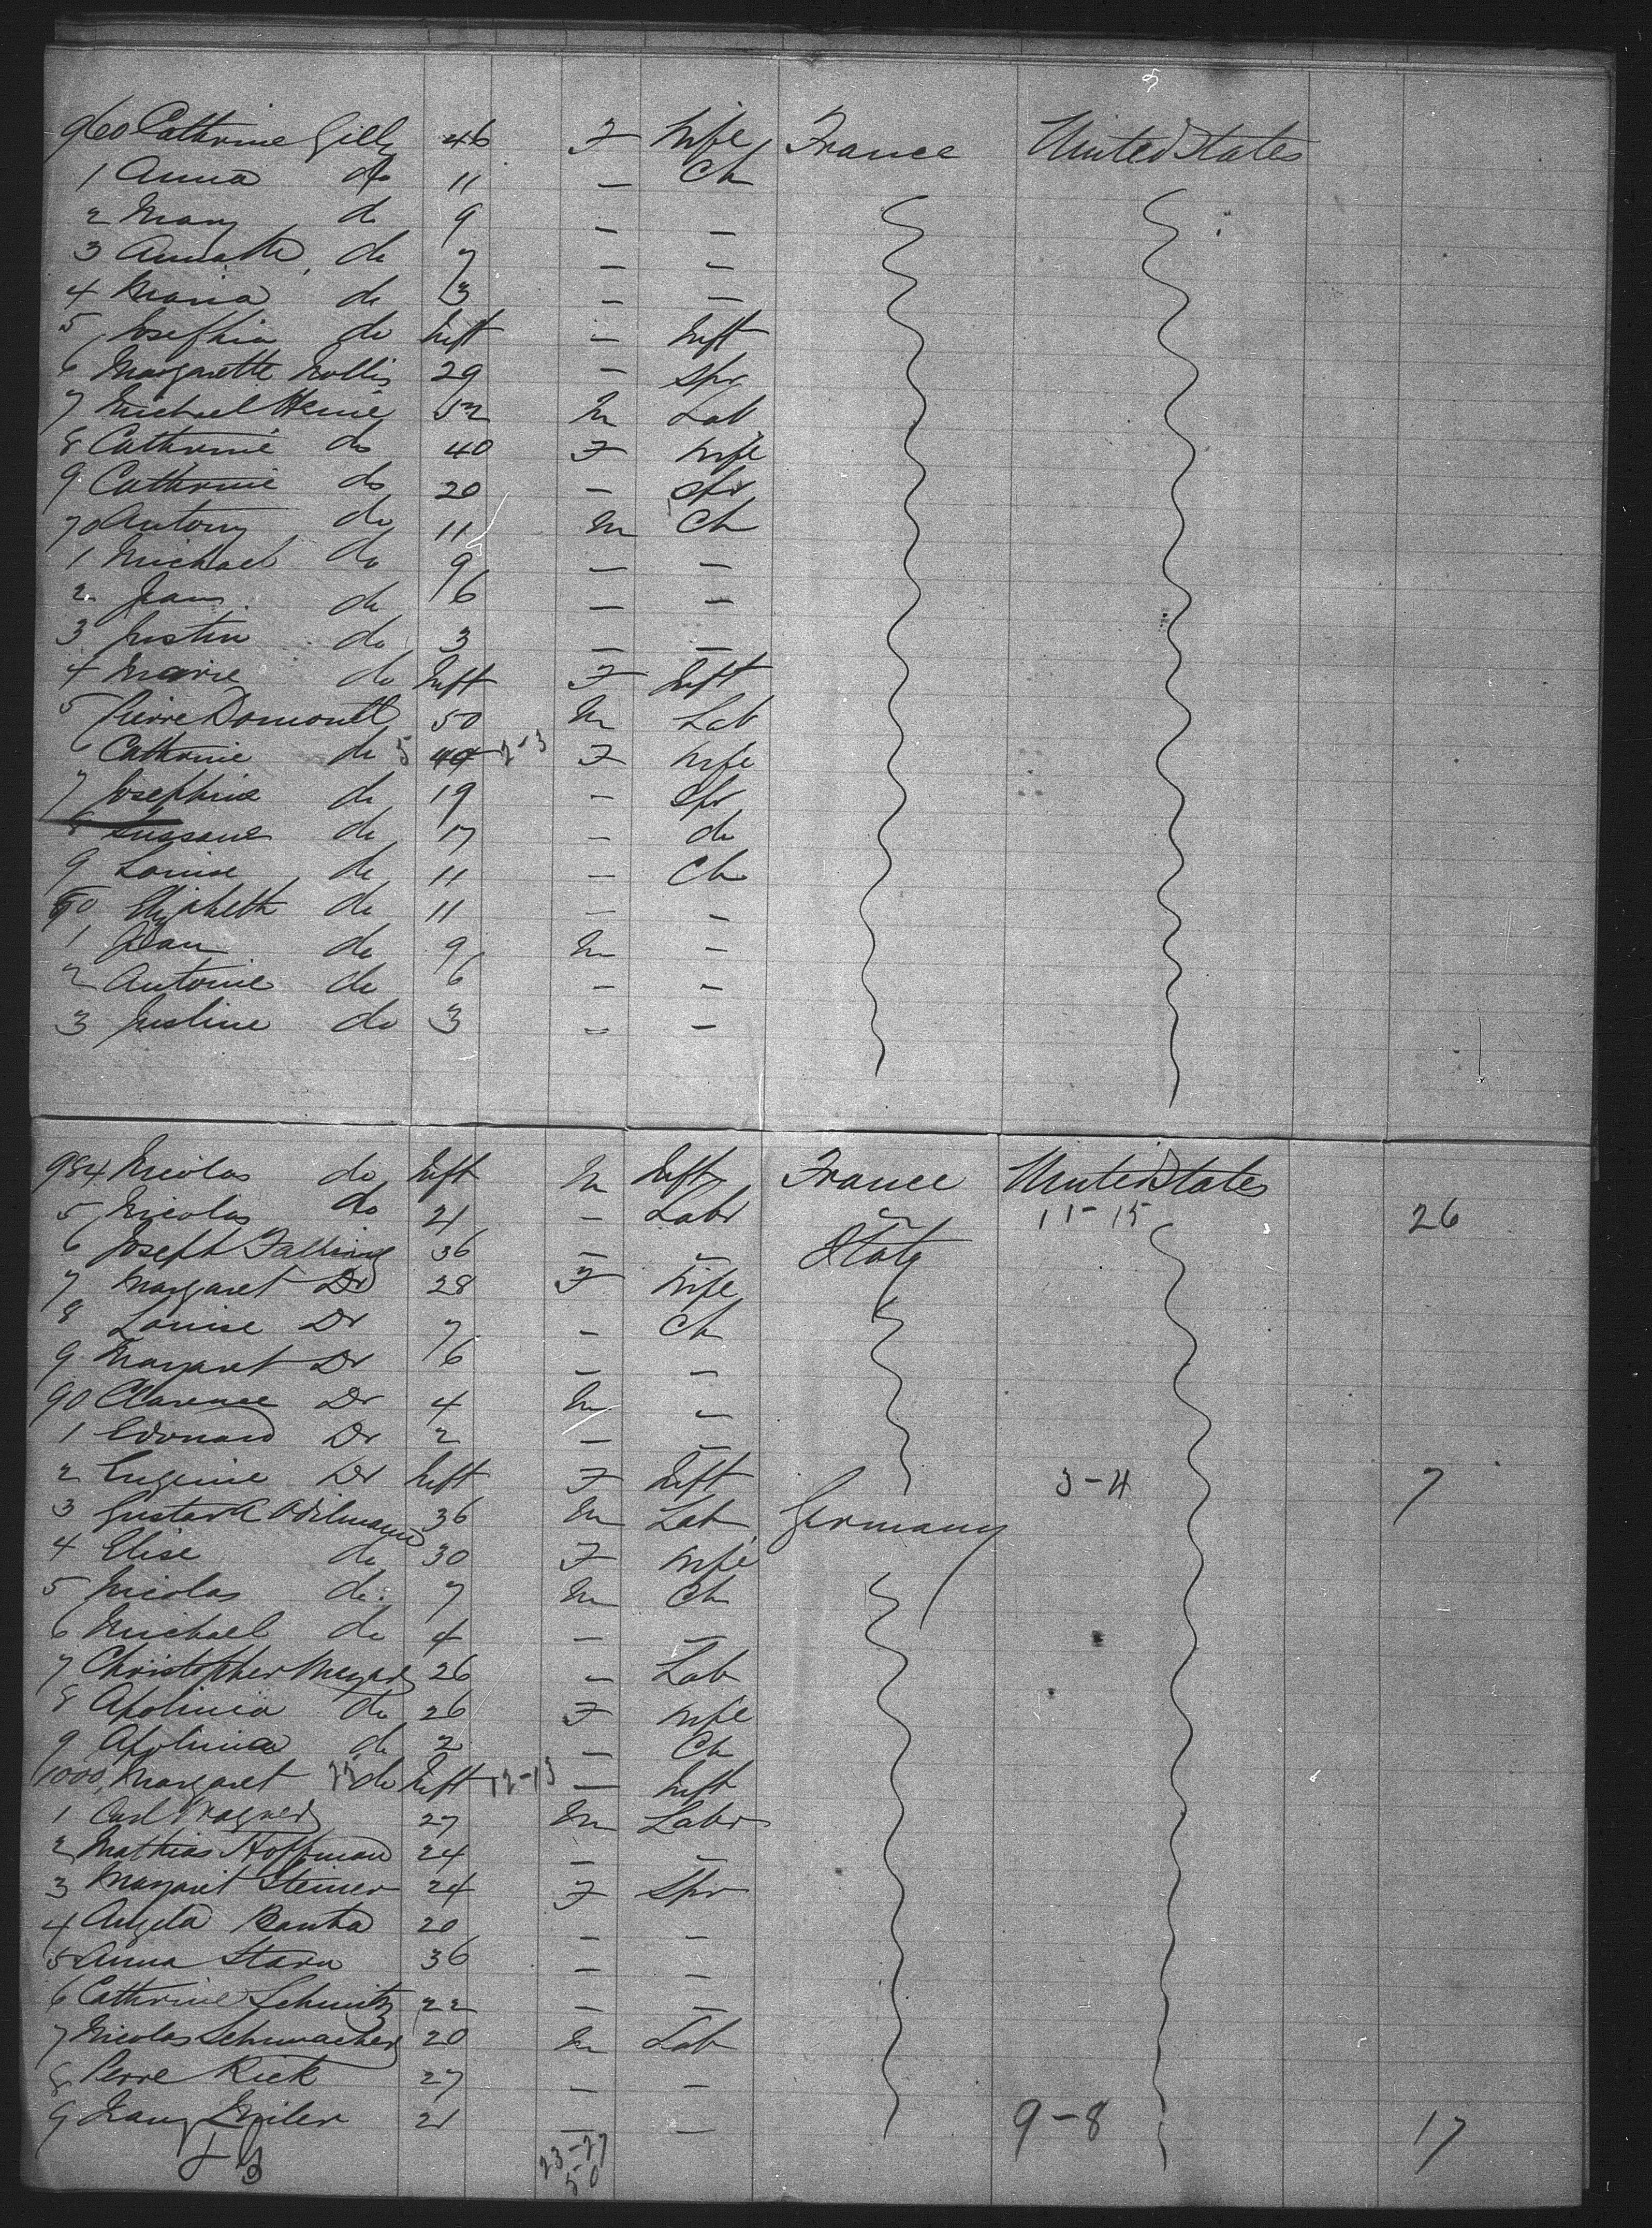 960 Cathrine Gilly 46 F Wife France United States
1 Anna do 11 — Ch
2 Mary do 9 — —
3 do 7 — —
4 Maria do 3 — —
5 Josephin do Inft — Inft
6 Margarette 29 — Spr
7 Michael 52 M Lab
8 Cathrine do 40 F Wife
9 Cathrine do 20 — Spr
70 Antony do 11 M Ch
1 Michael do 9 — —
2 Jean do 6 — —
3 Justin do 3 — —
4 Marie do Inft F Inft
5 Pierre Domonll 50 M Lab
6 Cathrine do 5 40 2-3 F Wife
7 Josephine do 19 — Spr
8 Sussane do 17 — do
9 Louise do 11 — Ch
80 Elizabeth do 11 — —
1 Jean do 9 M —
2 Antoine do 6 — —
3 Justine do 3 — —
984 Nicolas do Inft M Inft France United States
5 Nicolas do 21 — Labr — 11-15 26
6 Joseph 36 — — Italy
7 Margaret Do 28 F Wife
8 Louise Do 7 — Ch
9 Margaret Do 6 — —
90 Clarence Do 4 M —
1 Edouard Do 2 — —
2 Eugenie Do Inft F Inft 3-4 7
3 Gustav 36 M Lab Germany
4 Elise do 30 F Wife
5 Nicolas do 7 M Ch
6 Michael do 4 — —
7 Christopher 26 — Lab
8 Apolinia do 26 F Wife
9 Apolinia do 2 — Ch
1000 Margaret do Inft 12-13 — Inft
1 Carl Wagner 27 M Labr
2 Mathias Hoffman 24 — —
3 Margaret Steiner 24 F Spr
4 Angela 20 — —
5 Anna Stara 36 — —
6 Cathrine Schmitz 22 — —
7 Nicolas Schumacher 20 M Lab
8 Perre Rick 27 — —
9 21 — — 9-8 17
23-27
50